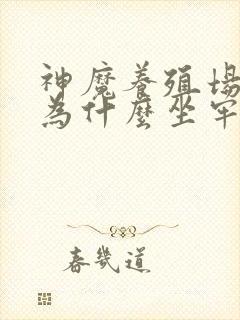 神魔養殖場
為什麼坐牢
春幾道